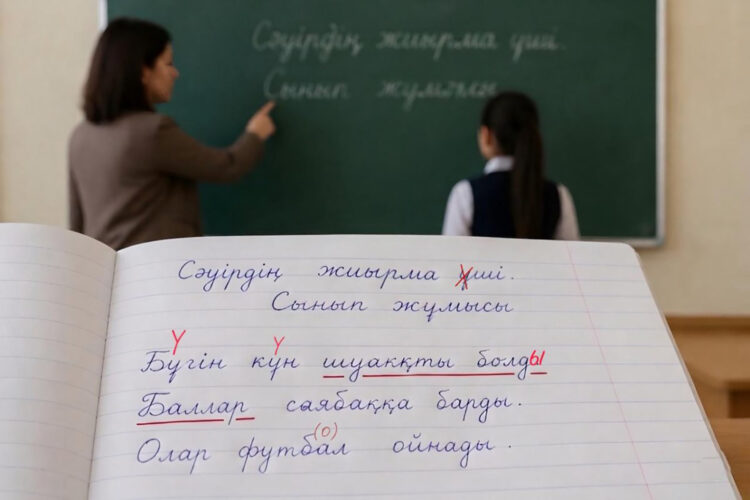 Сәуірдің жиырма үші.
Сынып
Сәуірдің жиырма ұші.
Сынып жұмысы
Ү Ү
Бұгін кұн шуаққты болды
Баллар саябаққа барды.
(о)
Олар футбал ойнады.